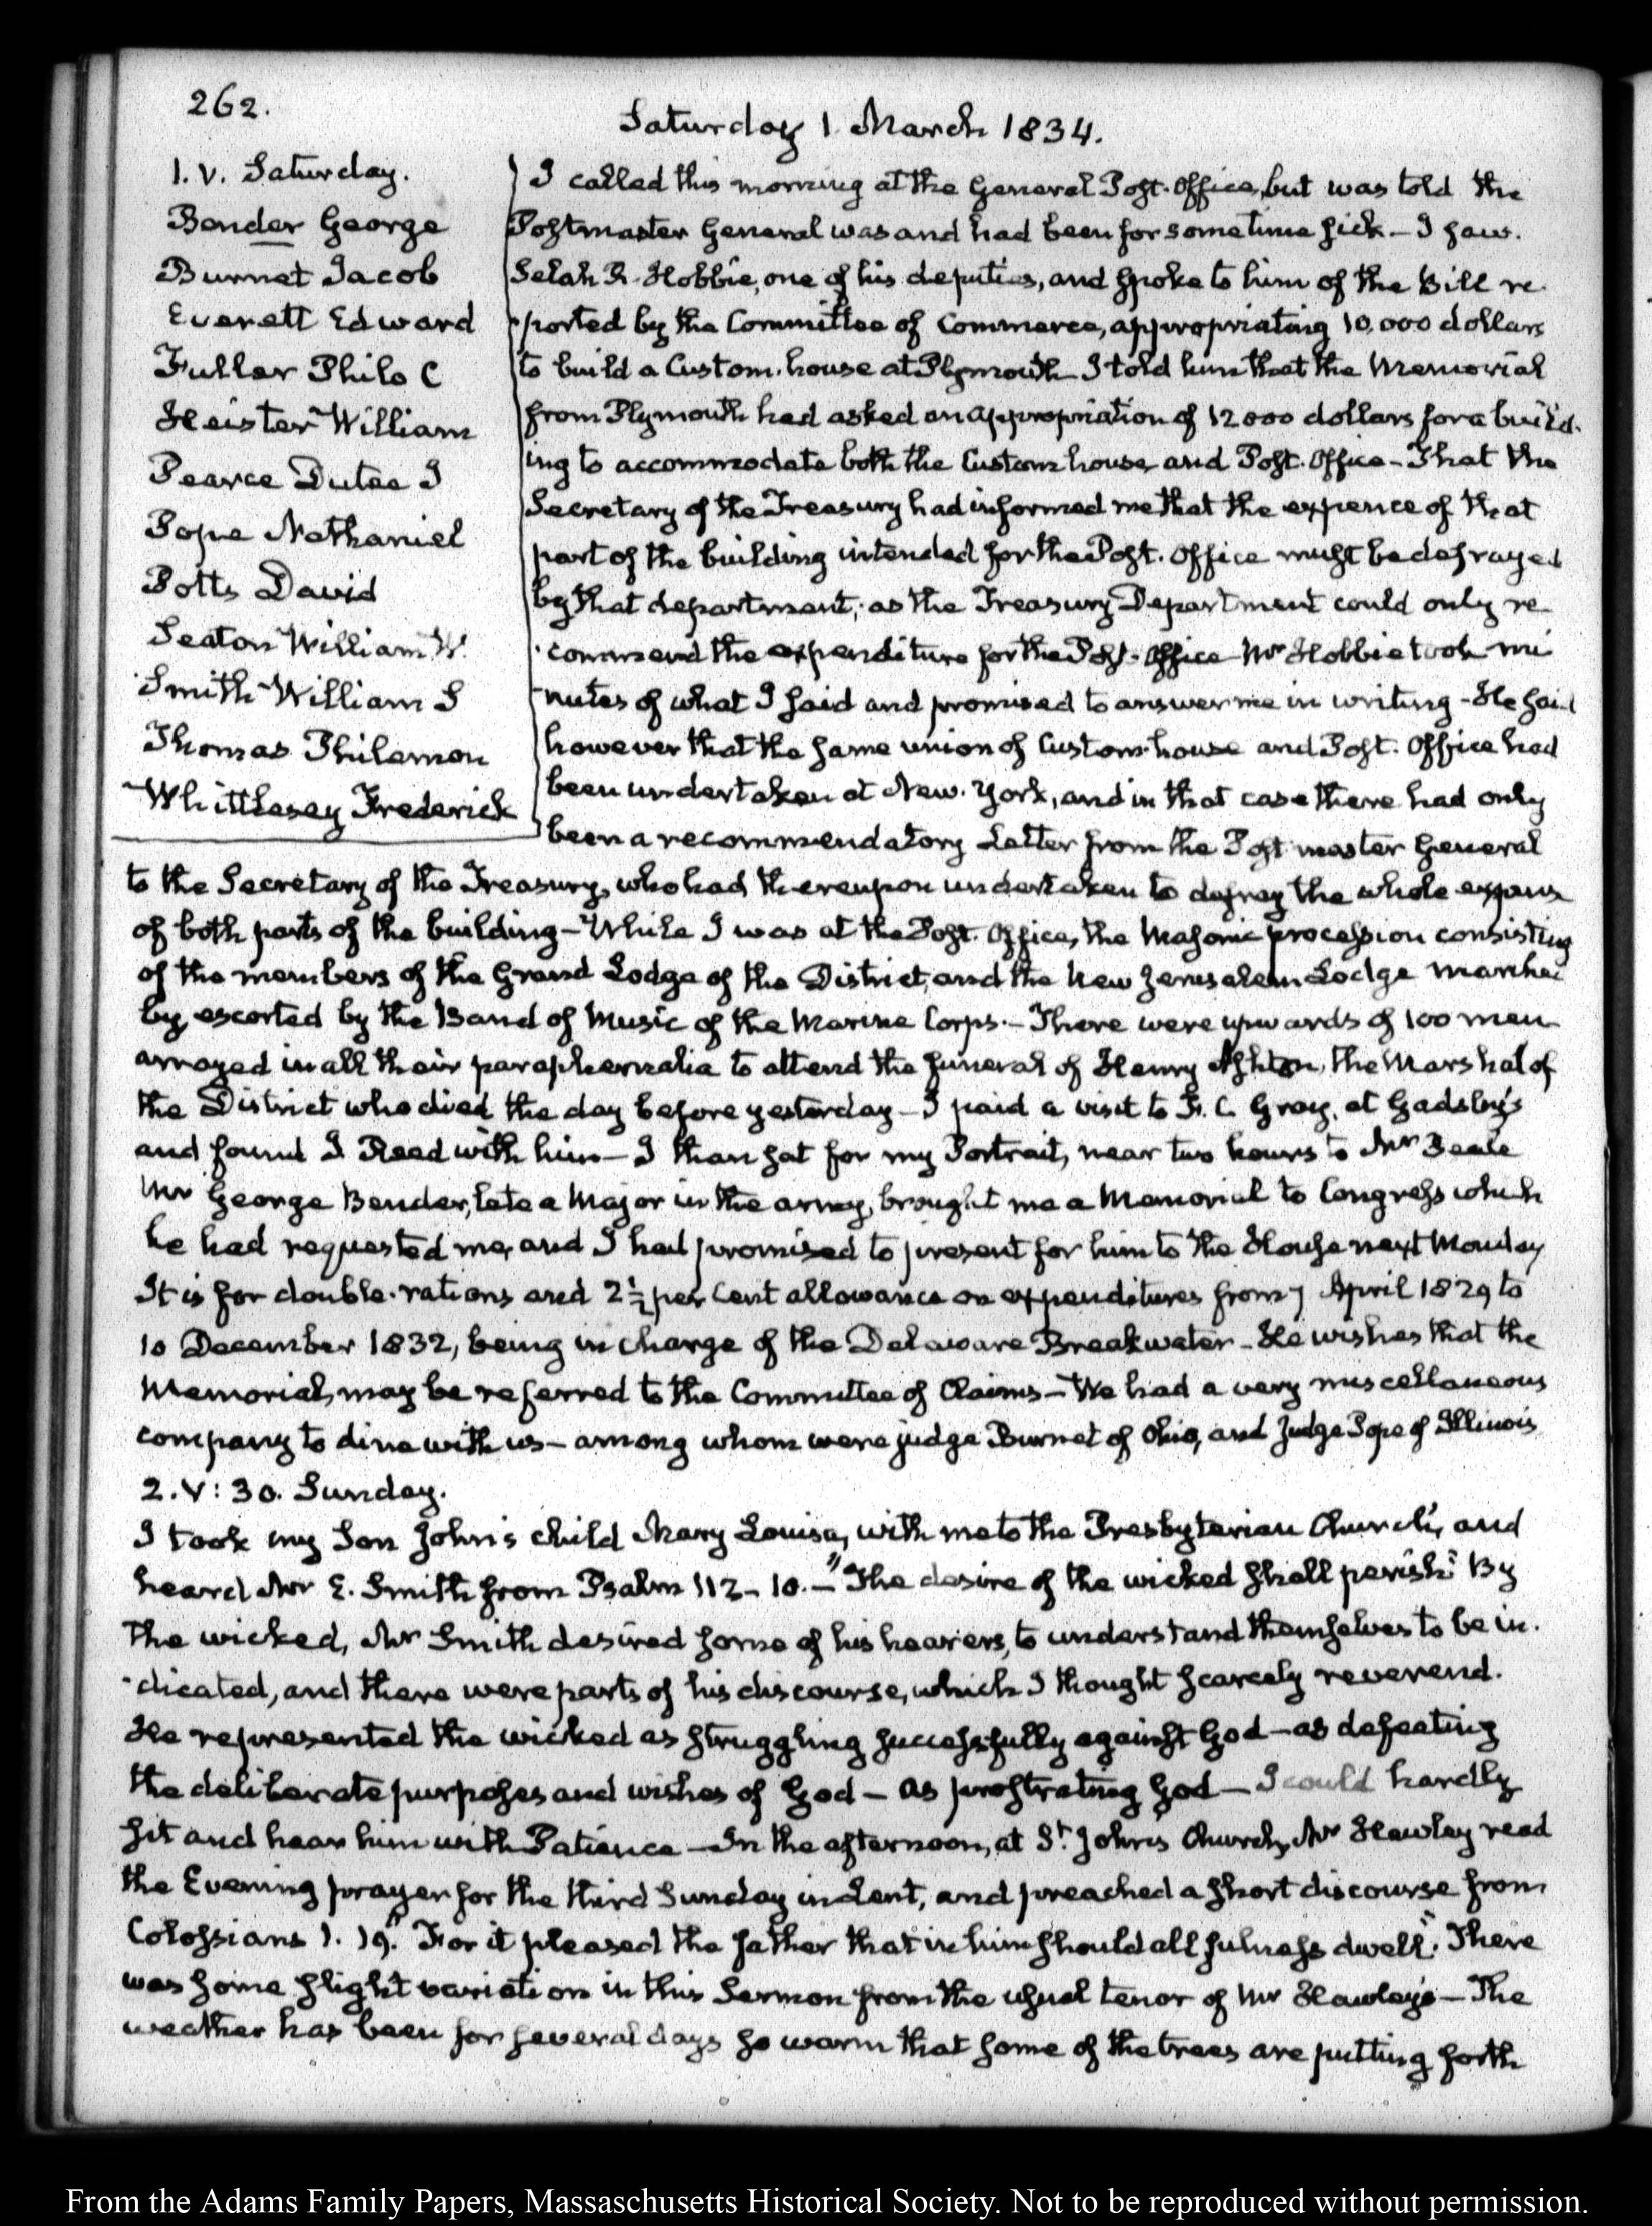 262.
Saturday 1. March 1834.
1. V. Saturday.
Bender George
Burnet Jacob
Everett Edward
Fuller Philo C
Heister William
Pearce Dutee J
Pope Nathaniel
Potts David
Seaton William W.
Smith William S
Thomas Philemon
Whittlesey Frederick
I called this morning at the General Post-Office, but was told the
Postmaster General was and had been for sometime sick — I saw.
Selah R. Hobbie, one of his deputies, and spoke to him of the Bill re-
ported by the Committee of Commerce, appropriating 10,000 dollars
to build a Custom-house at Plymouth — I told him that the Memorial
from Plymouth had asked an appropriation of 12000 dollars for a build-
ing to accommodate both the Custom house and Post-Office — That the
Secretary of the Treasury had informed me that the expence of that
part of the building intended for the Post-Office must be defrayed
by that department; as the Treasury Department could only re-
-commend the expenditure for the Post-Office — Mr Hobbie took mi
-nutes of what I said and promised to answer me in writing — He said
however that the same union of Custom-house and Post-Office had
been undertaken at New-York, and in that case there had only
been a recommendatory Letter from the Post master General
to the Secretary of the Treasury, who had thereupon undertaken to defray the whole expense
of both parts of the building — While I was at the Post-Office, the Masonic procession consisting
of the members of the Grand Lodge of the District, and the New Jerusalem Lodge marched
by escorted by the Band of Music of the Marine Corps. — There were upwards of 100 men
arrayed in all their paraphernalia to attend the funeral of Henry Ashton, the Marshal of
the District who died the day before yesterday — I paid a visit to F. C. Gray, at Gadsby's
and found J. Reed with him — I then sat for my Portrait, near two hours to Mr Beale
Mr George Bender, late a Major in the army, brought me a Memorial to Congress which
he had requested me, and I had promised to present for him to the House next Monday
It is for double-rations and 2½ per Cent allowance on expenditures from 7 April 1829 to
10 December 1832, being in charge of the Delaware Breakwater — He wishes that the
Memorial, may be referred to the Committee of Claims — We had a very miscellaneous
company to dine with us — among whom were judge Burnet of Ohio, and Judge Pope of Illinois
2. V: 30. Sunday.
I took my Son John's child Mary Louisa, with me to the Presbyterian Church, and
heard Mr E. Smith from Psalm 112-10. — "The desire of the wicked shall perish" By
the wicked, Mr Smith desired some of his hearers, to understand themselves to be in-
-dicated, and there were parts of his discourse, which I thought scarcely reverend.
He represented the wicked as struggling successfully against God — as defeating
the deliberate purposes and wishes of God — as prostrating God — I could hardly
sit and hear him with Patience — In the afternoon, at St. John's Church, Mr Hawley read
the Evening prayer for the third Sunday in Lent, and preached a short discourse from
Colossians 1. 19. "For it pleased the father that in him should all fulness dwell". There
was some slight variation in this Sermon from the usual tenor of Mr Hawley's — The
weather has been for several days so warm that some of the trees are putting forth
From the Adams Family Papers, Massachusetts Historical Society. Not to be reproduced without permission.